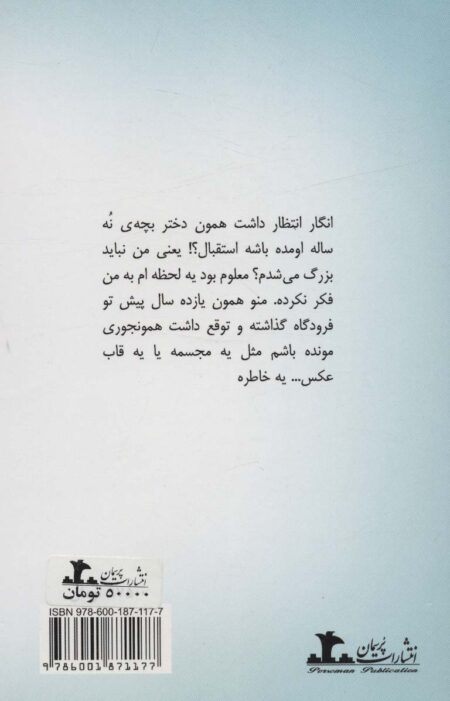 انگار انتظار داشت همون دختر بچه‌ی نُه
ساله اومده باشه استقبال؟! یعنی من نباید
بزرگ می‌شدم؟ معلوم بود یه لحظه ام به من
فکر نکرده. منو همون یازده سال پیش تو
فرودگاه گذاشته و توقع داشت همونجوری
مونده باشم مثل یه مجسمه یا یه قاب
عکس... یه خاطره
انتشارات پُرسمان
۵۰۰۰۰ تومان
ISBN 978-600-187-117-7
9 786001 871177
انتشارات پُرسمان
Porseman Publication